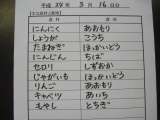 平成 28年 3月 16:00
にんにく あおもり
しょうが こうち
たまねぎ ほっかいどう
にんじん ちば
セロリ しずおか
じゃがいも ほっかいどう
りんご あおもり
キャベツ あいち
もやし とちぎ